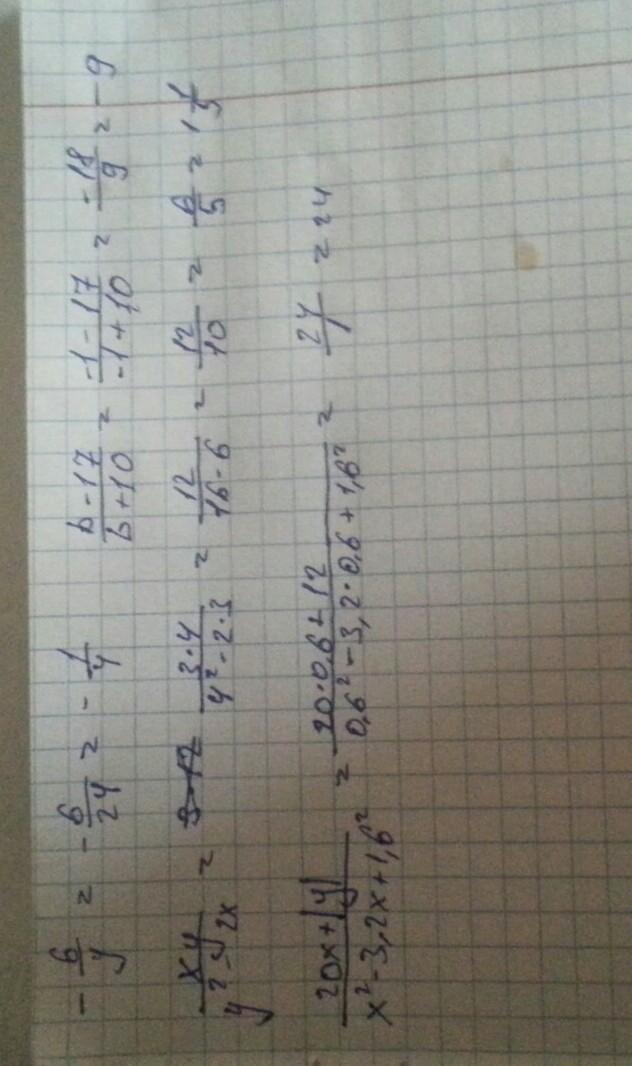 -6/y = -6/24 = -1/4 b-17/b+10 = -1-17/-1+10 = -18/9 = -9
xy/y²-2x = 3·4/4²-2·3 = 12/16-6 = 12/10 = 6/5 = 1 1/5
20x+|y|/x²-3,2x+1,6² = 20·0,6+12/0,6²-3,2·0,6+1,6² = 24/1 = 24